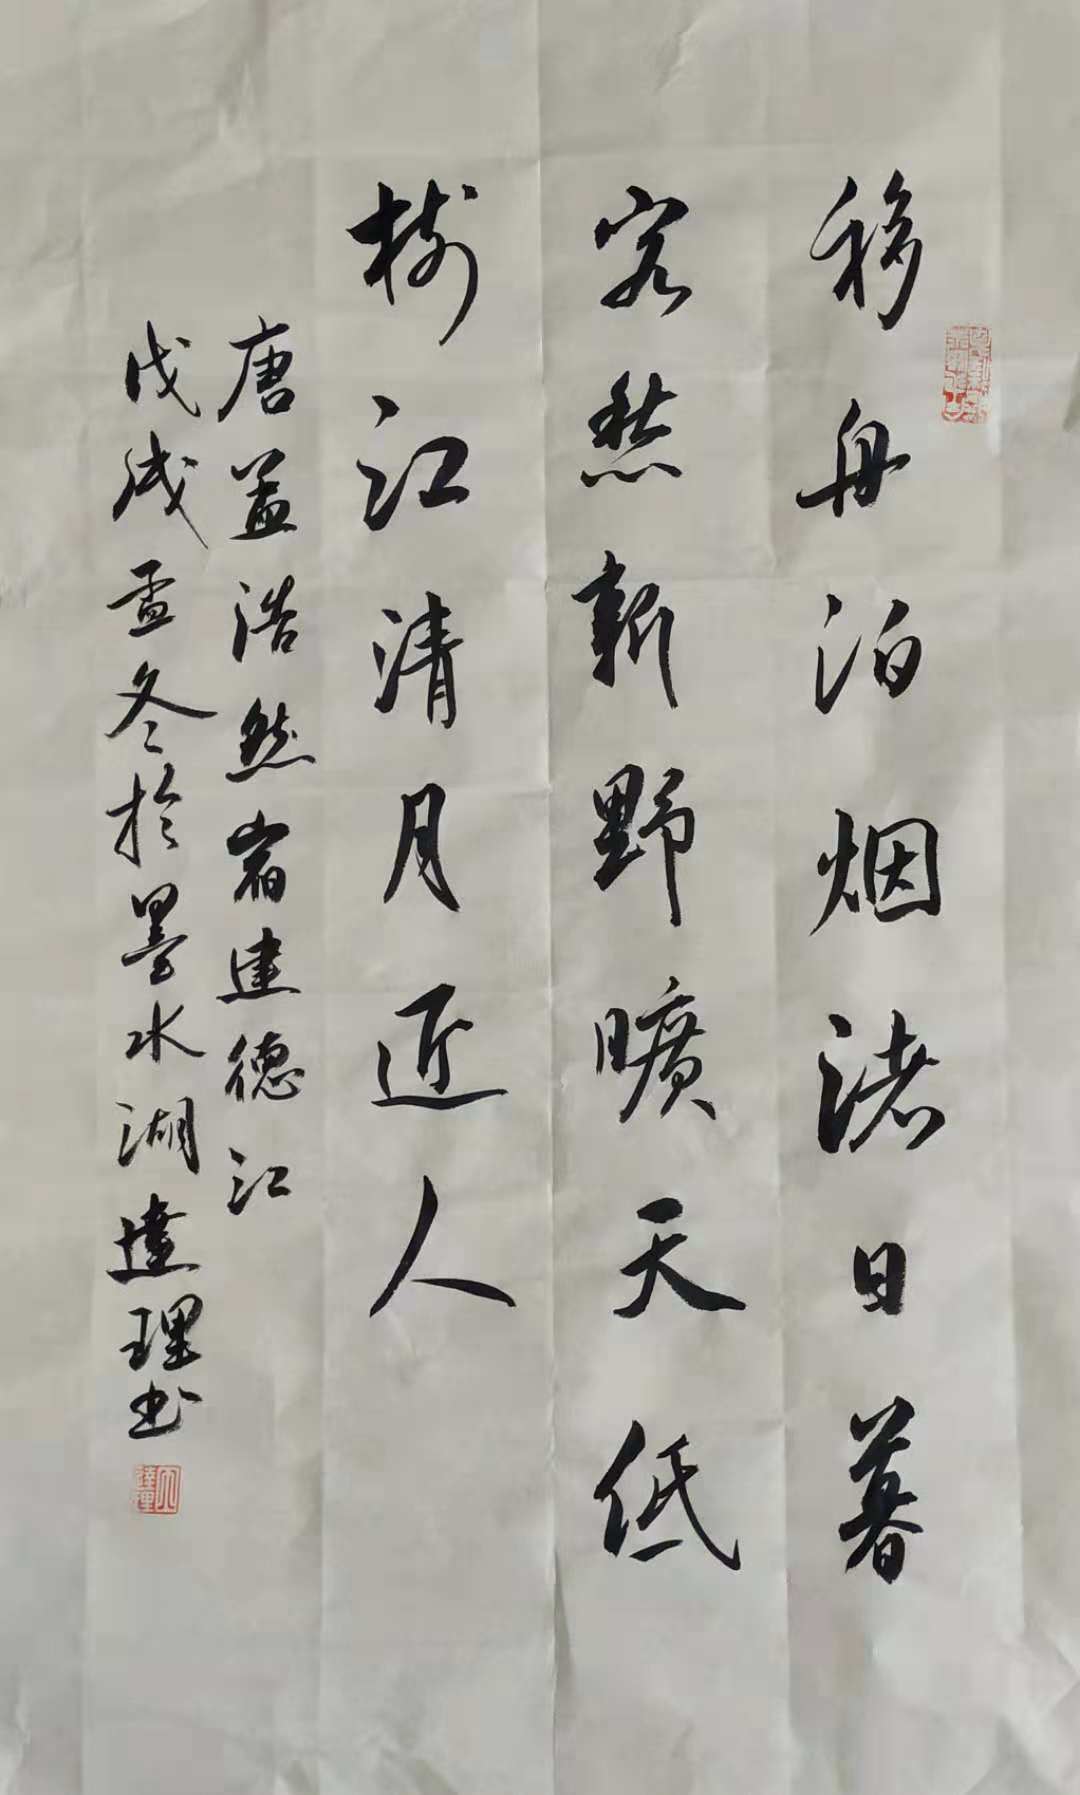 移舟泊烟渚日暮
客愁新野曠天低
樹江清月近人
唐孟浩然宿建德江
戊戌孟冬於墨水湖達理书